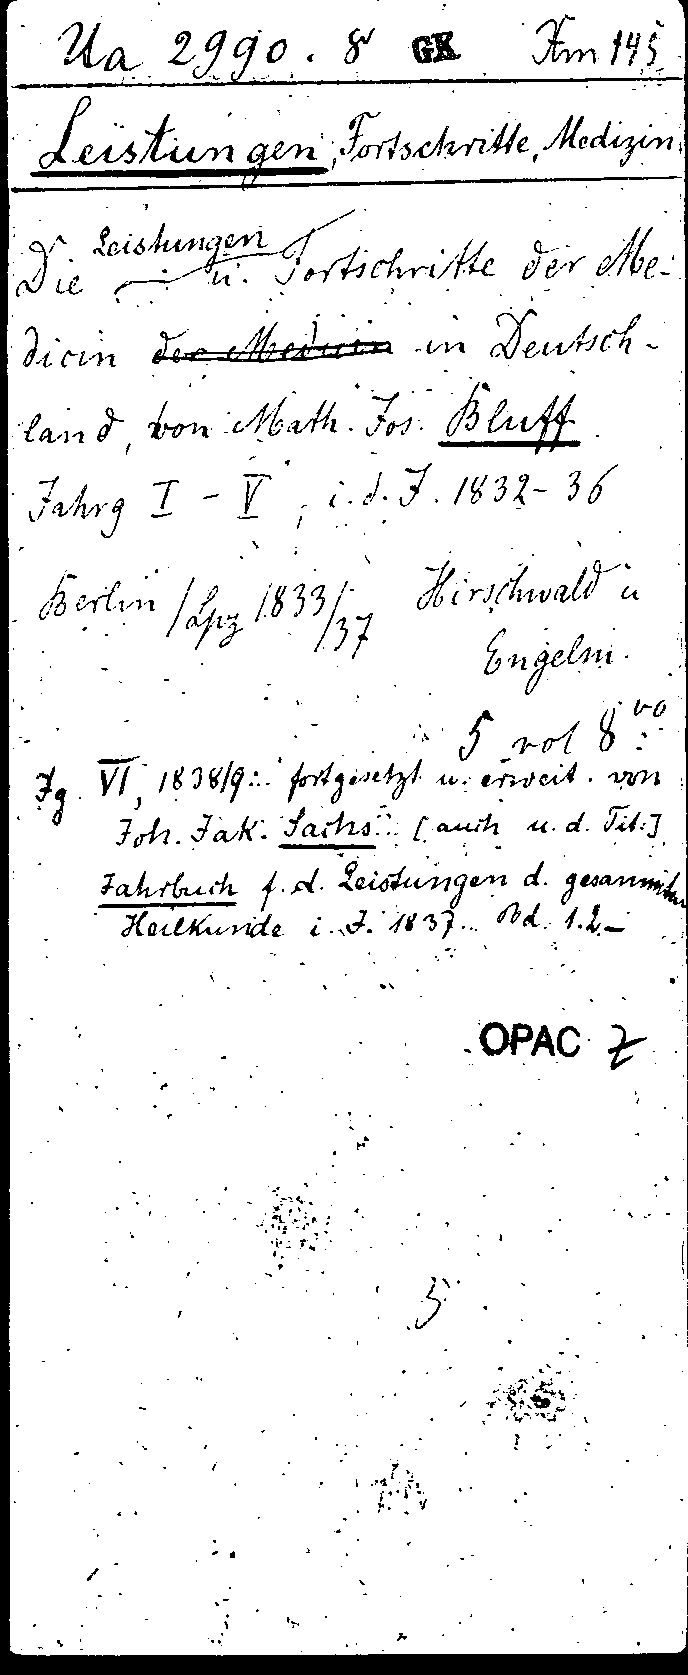 Ua 2990.8 GK Xm 145
Leistungen, Fortschritte, Medizin.
Leistungen
Die u. Fortschritte der Me-
dicin der Medicin in Deutsch-
land, von Math. Jos. Bluff.
Jahrg I - V, i. d. J. 1832-36
Berlin / Lpz 1833/37 Hirschwald u
Engelm.
5 vol 8vo
Jg. VI, 1838/9: fortgesetzt u. erweit. von
Joh. Jak. Sachs. [auch u. d. Tit:]
Jahrbuch f. d. Leistungen d. gesammten
Heilkunde i. J. 1837. Bd. 1.2.-
OPAC Z
5